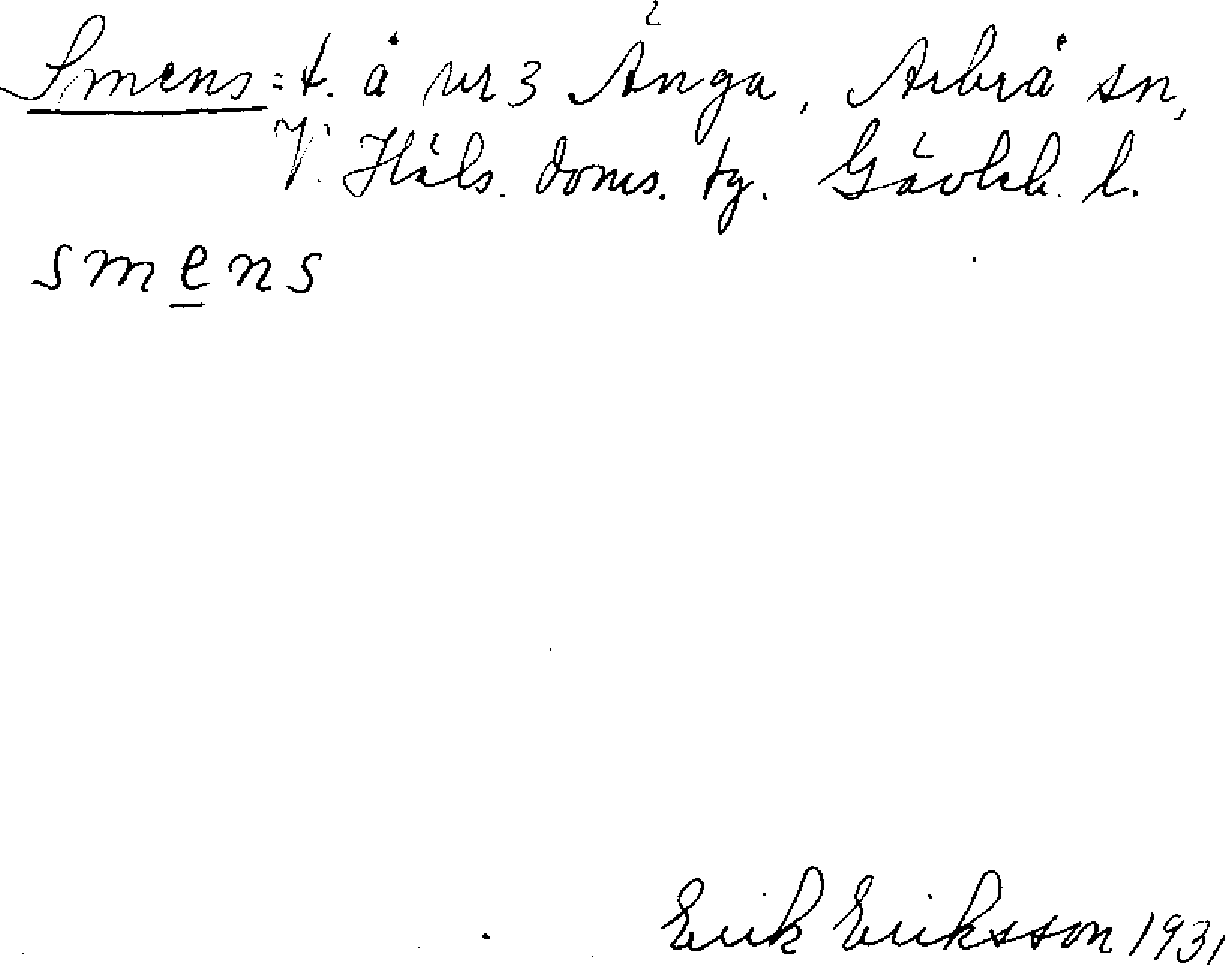 Smens = t. å nr 3 Änga, Arbrå sn,
V. Häls. doms. tg. Gävleb. l.
smens
Erik Eriksson 1931